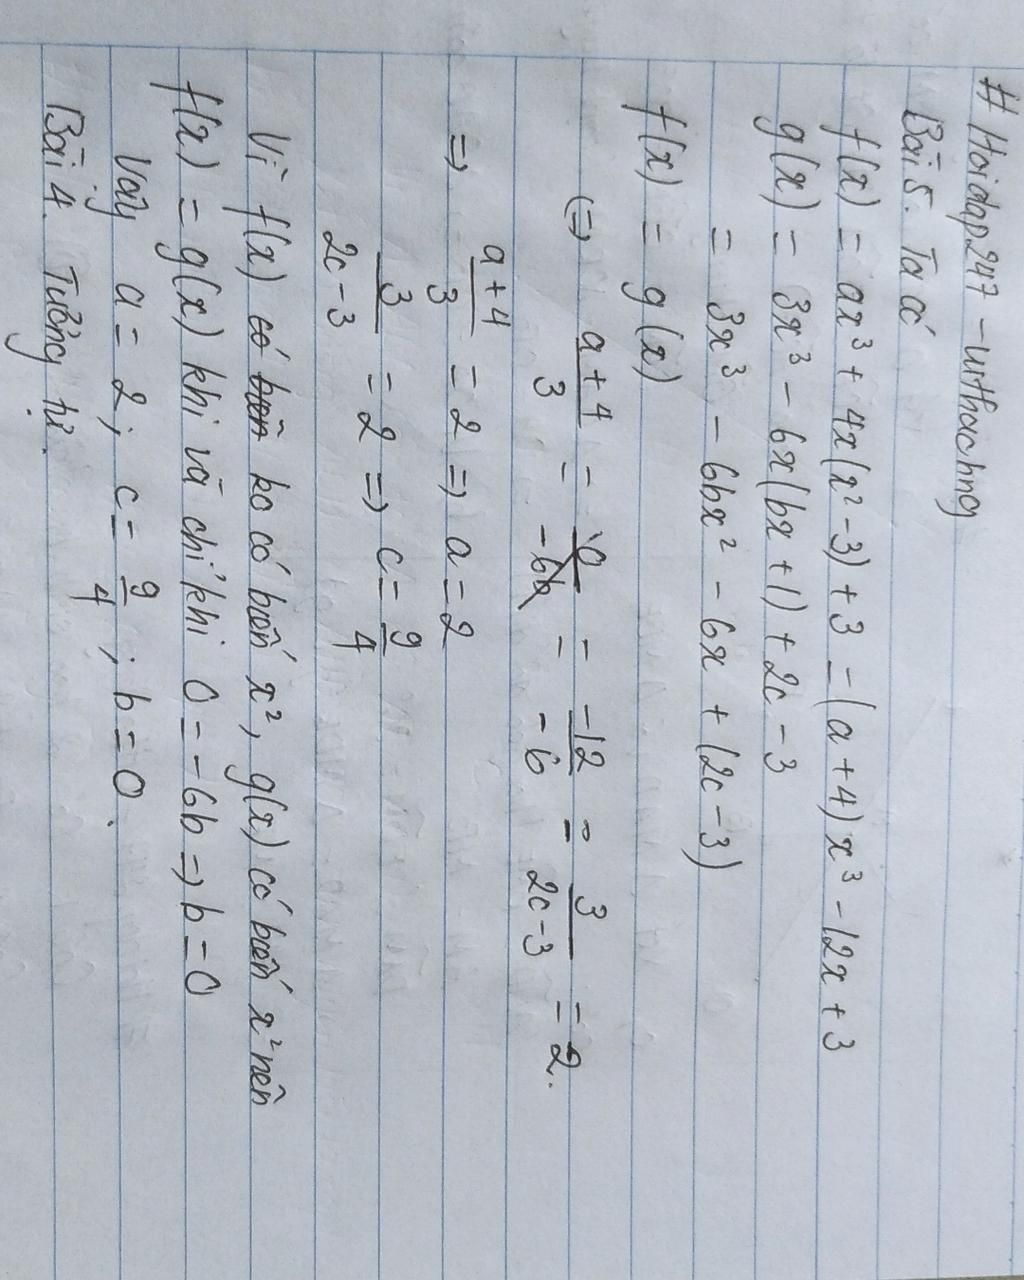 # Hoidap247 - uthachng
Bài 5. Ta có
f(x) = ax³ + 4x(x² - 3) + 3 = (a + 4)x³ - 12x + 3
g(x) = 3x³ - 6x(bx + 1) + 2c - 3
= 3x³ - 6bx² - 6x + (2c - 3)
f(x) = g(x)
(=) a+4/3 = 0/-6b = -12/-6 = 3/2c-3 = 2.
=) a+4/3 = 2 =) a = 2
3/2c-3 = 2 =) c = 9/4
Vì f(x) có ko có biến x², g(x) có biến x² nên
f(x) = g(x) khi và chỉ khi 0 = -6b =) b = 0
Vậy a = 2; c = 9/4; b = 0.
Bài 4. Tương tự.